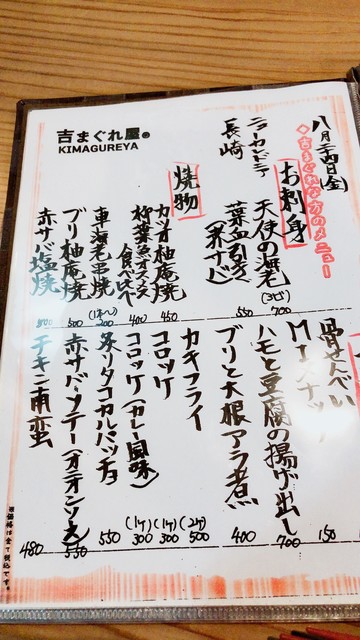 吉まぐれ屋
KIMAGUREYA
八月二十四日(金)
◇吉まぐれな方のメニュー
お刺身
ニューカレドニア 天使の海老 (3ビ) 700
長崎 葉血引き(養ナベ) 550
焼物
カツオ柚庵焼 450
食べくらべ 400
車海老串焼 (1本) 200
ブリ柚庵焼 500
赤サバ塩焼
骨せんべい 150
MIXナッツ
ハモと豆腐の揚げ出し 700
ブリと大根アラ煮 400
カキフライ (2ケ) 500
コロッケ (1ケ) 300
コロッケ(カレー風味) (1ケ) 300
タコカルパッチョ 550
赤サバソテー(オニオンソース) 550
チキン南蛮 480
※価格は全て税込です。